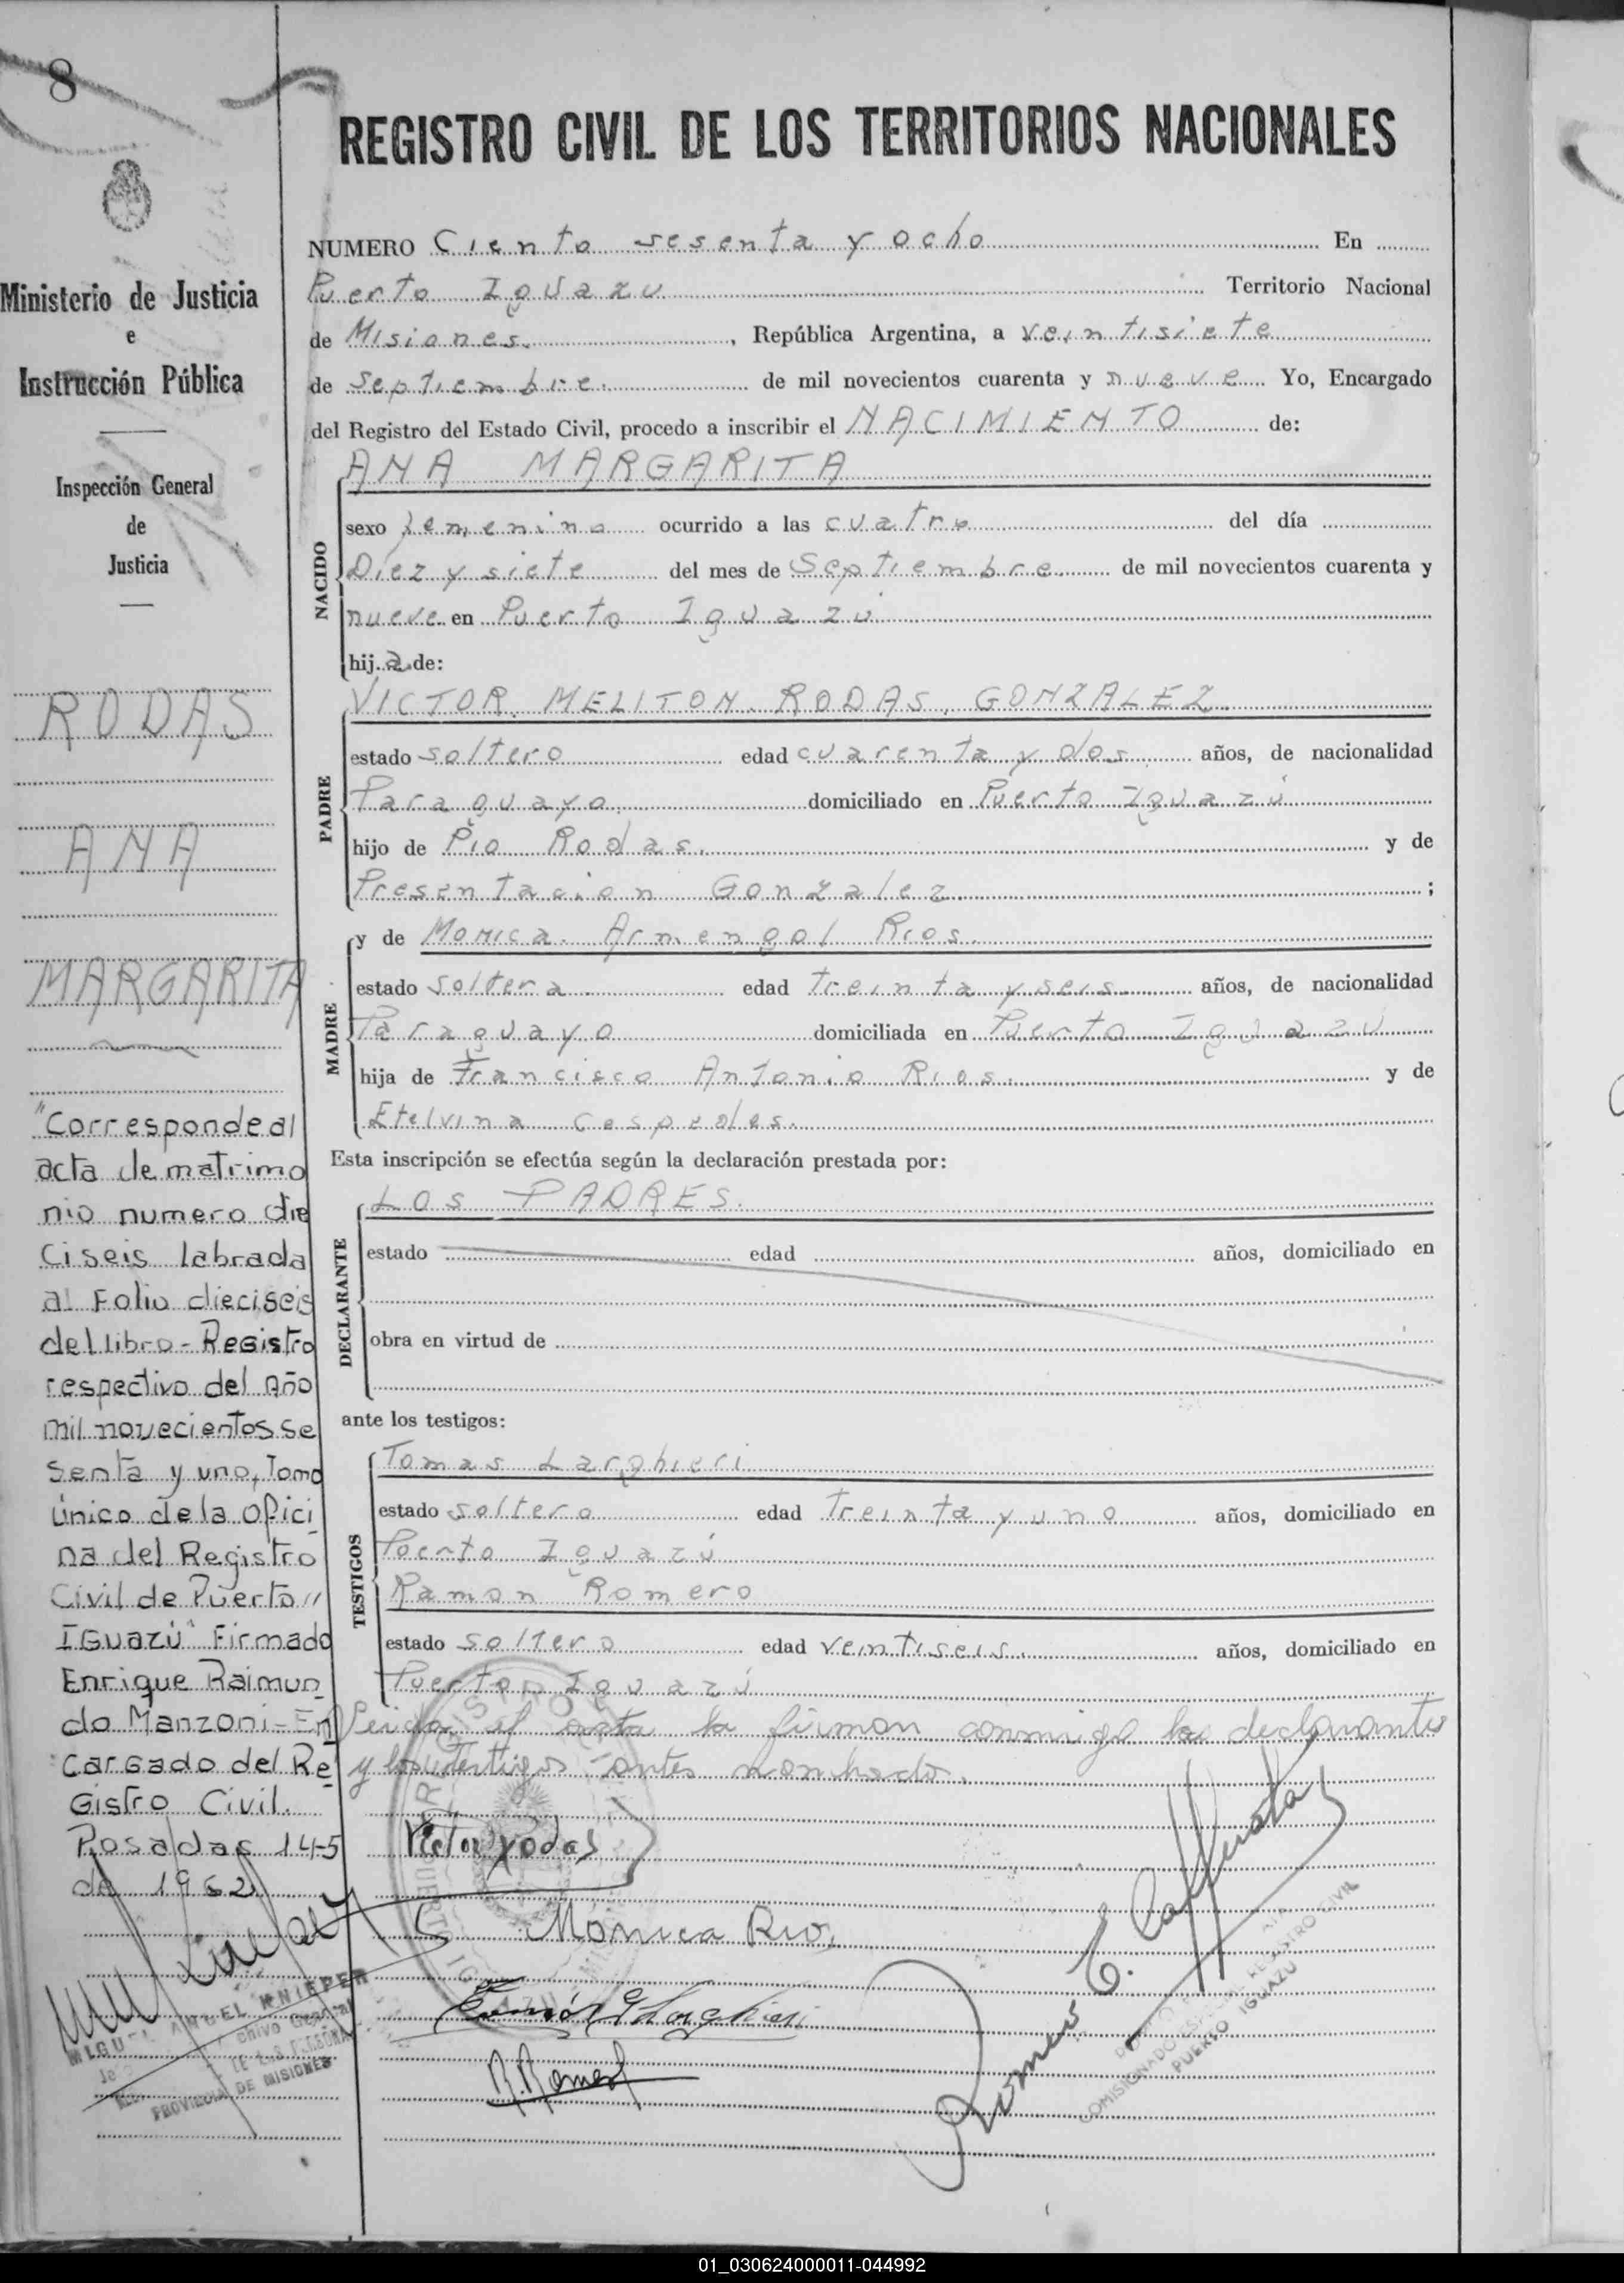 8
REGISTRO CIVIL DE LOS TERRITORIOS NACIONALES
Ministerio de Justicia
e
Instrucción Pública
Inspección General
de
Justicia
RODAS
ANA
MARGARITA
"Corresponde al
acta de matrimo
nio numero die
ciseis labrada
al Folio dieciseis
del libro-Registro
respectivo del Año
mil novecientos se
senta y uno, Tomo
único de la ofici
na del Registro
Civil de Puerto //
IGuazú" Firmado
Enrique Raimun
do Manzoni-En
cargado del Re
Gistro Civil.
Posadas 14-5
de 1962
MIGUEL ANGEL KNIEPER
PROVINCIA DE MISIONES
NUMERO Ciento sesenta y ocho En
Puerto Iguazu Territorio Nacional
de Misiones. , República Argentina, a veintisiete
de Septiembre. de mil novecientos cuarenta y nueve Yo, Encargado
del Registro del Estado Civil, procedo a inscribir el NACIMIENTO de:
ANA MARGARITA
NACIDO
sexo femenino ocurrido a las cuatro del día
Diez y siete del mes de Septiembre de mil novecientos cuarenta y
nueve en Puerto Iguazú
hija de:
VICTOR MELITON RODAS GONZALEZ
PADRE
estado soltero edad cuarenta y dos años, de nacionalidad
Paraguayo domiciliado en Puerto Iguazú
hijo de Pio Rodas. y de
Presentacion Gonzalez ;
y de Monica Armengol Rios.
MADRE
estado soltera edad treinta y seis años, de nacionalidad
Paraguayo domiciliada en Puerto Iguazú
hija de Francisco Antonio Rios. y de
Etelvina Cespedes.
Esta inscripción se efectúa según la declaración prestada por:
LOS PADRES.
DECLARANTE
estado edad años, domiciliado en
obra en virtud de
ante los testigos:
Tomas Larghieri
TESTIGOS
estado soltero edad treinta y uno años, domiciliado en
Puerto Iguazú
Ramon Romero
estado soltero edad veintiseis años, domiciliado en
Puerto Iguazú
Leida el acta la firman conmigo los declarantes
y los testigos antes nombrado.
Victor Rodas
Mónica Rios
R. Romero
REGISTRO CIVIL
PUERTO IGUAZU
01_030624000011-044992